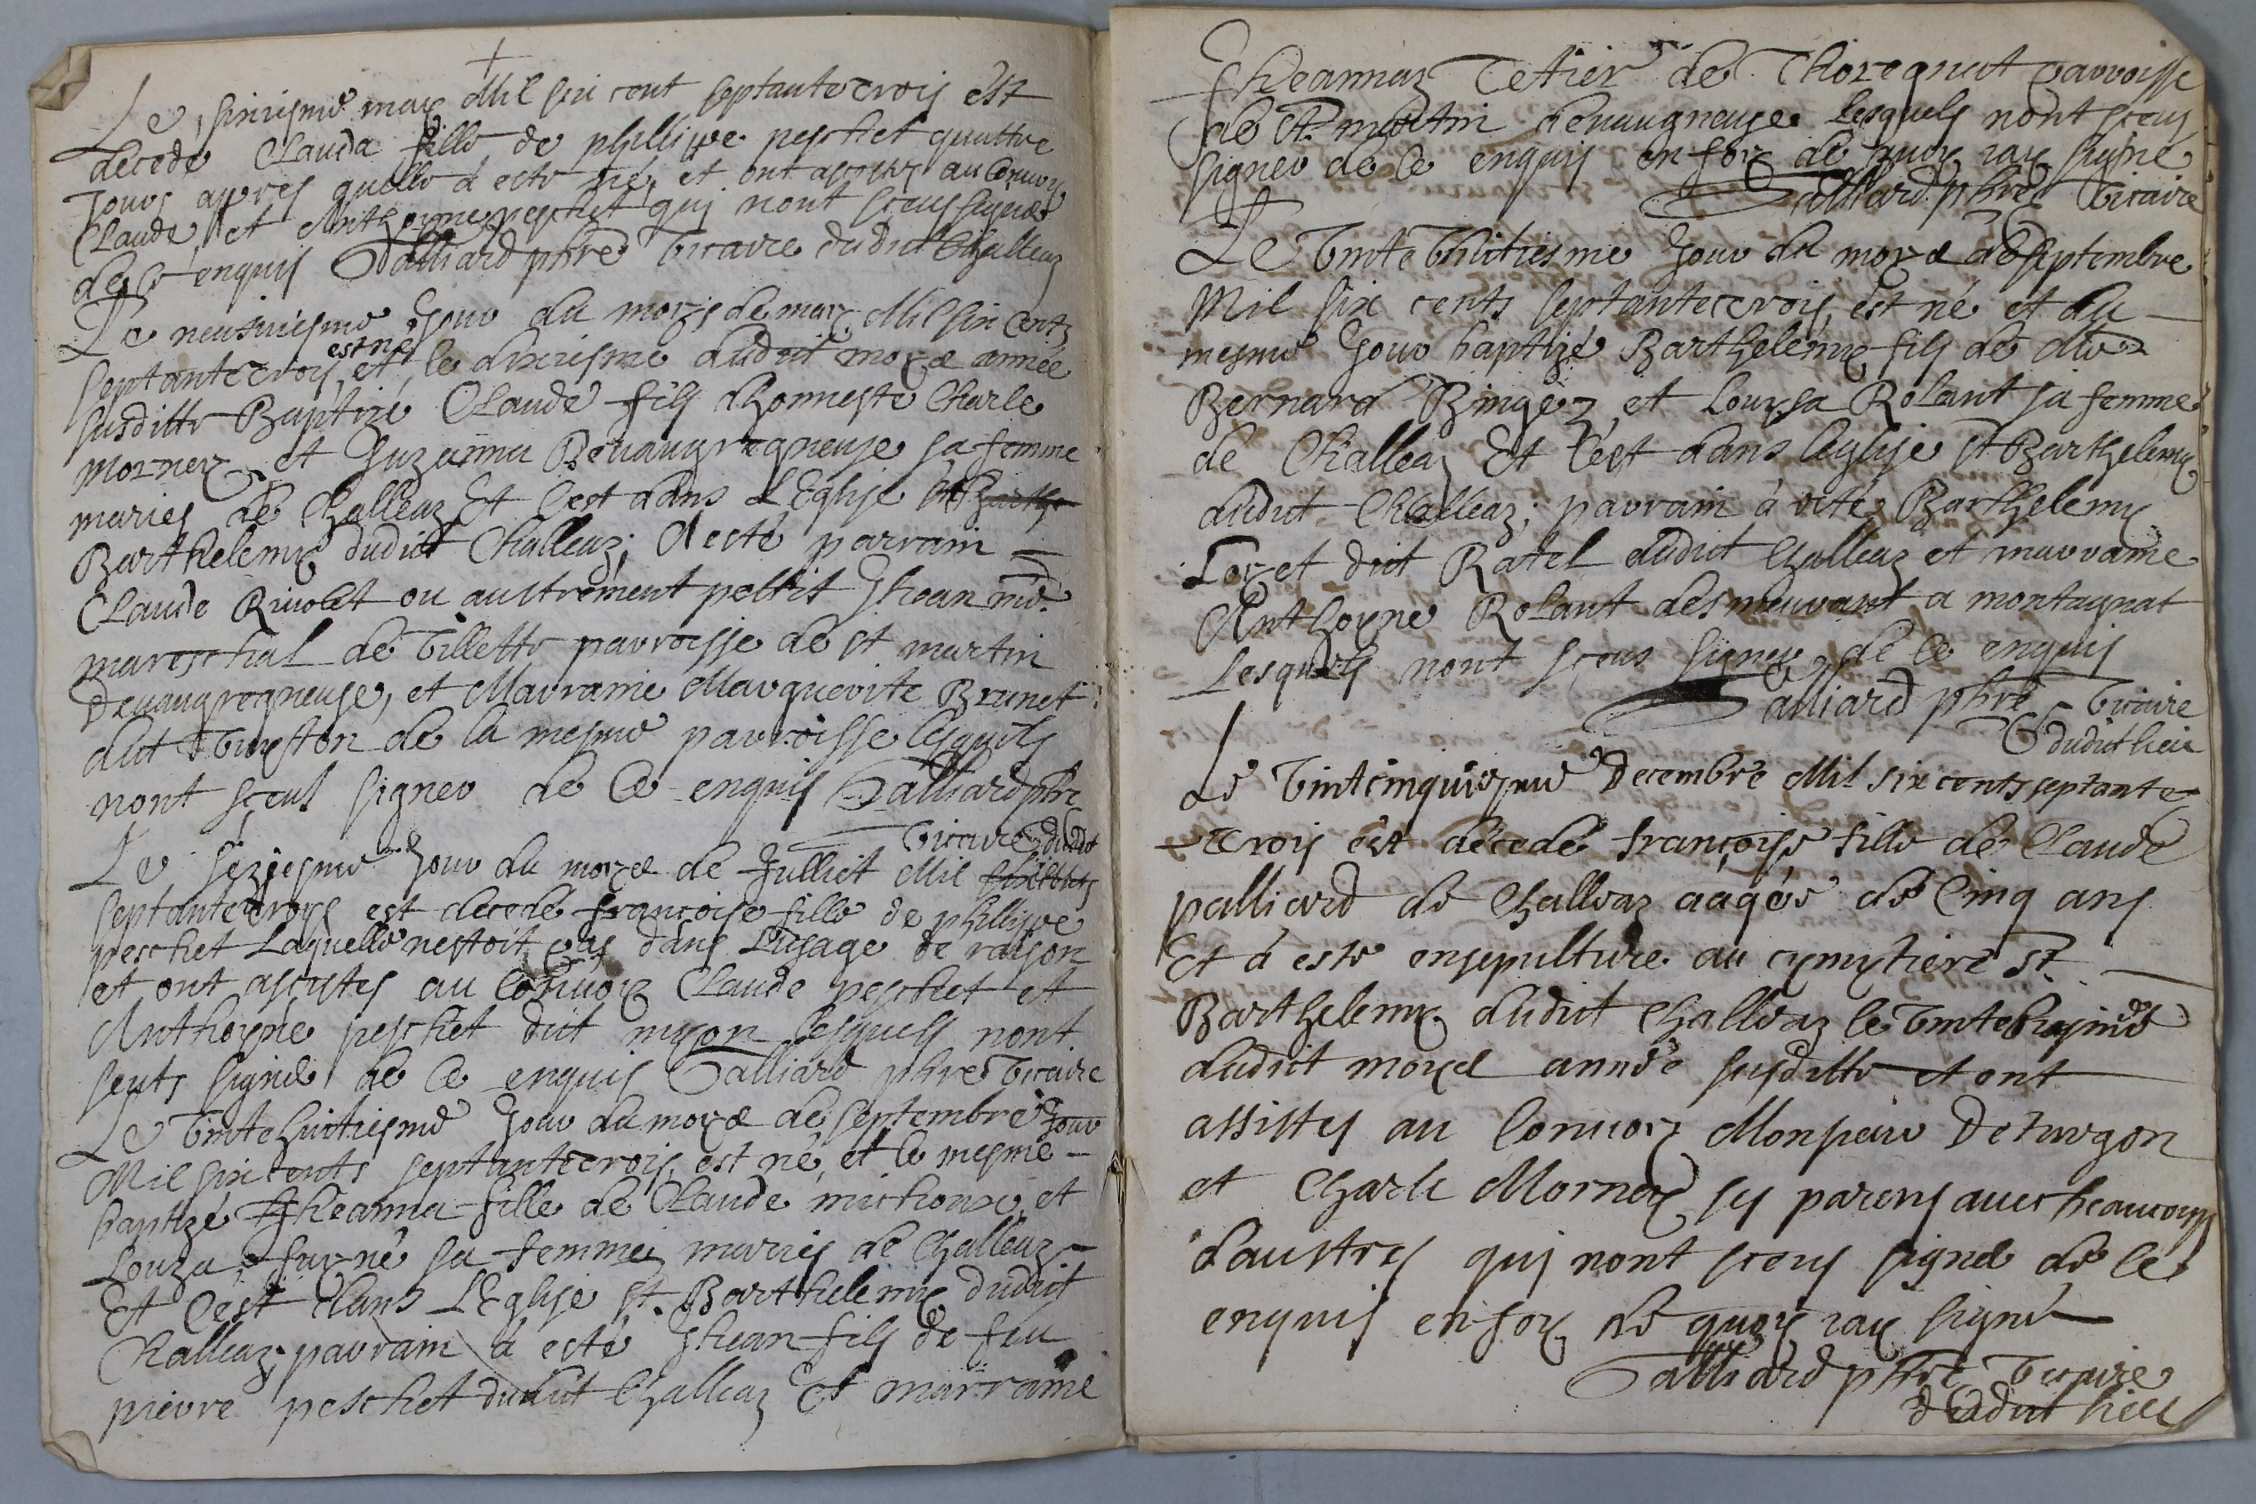 Le sixiesme may Mil six cent septante trois est
decede Clauda fille de phillippe peschet quattre
Jours apres quelle a este née et ont assistes au convoy
Claude et Anthoyne peschet qui nont sceus signer
de ce enquis Palliard pbre vicaire dudict Challeaz
Le neufviesme Jour du moys de may Mil six Cents
septante troys est né et le dixiesme dudict moys année
susditte Baptizé Claude fils dhonneste Charle
Mornex et Suzanna Devaugregneuse sa femme
maries de Challeaz Et C'est dans L'Eglise St Barthe
Barthelemy dudict Challeaz; A esté parrain
Claude Rivolet ou austrement pettit Jhean me
mareschal de Villette parroisse de st martin
Devaugregneuse, et Marraine Marguerite Brunet
de la mesme parroisse lesquels
nont sceus signer de Ce enquis Palliard pbre
vicaire dudict
Le séziesme Jour du moys de Julliet Mil six cents
septante troys est decede françoise fille de phillippe
peschet Laquelle nestoit pas dans L'usage de raison
et ont assistes au Convoy Claude peschet et
Anthoyne peschet dict myon lesquels nont
seuts signer de Ce enquis Palliard pbre vicaire
Le vinte huitiesme Jour du moys de septembre Jour
Mil six cents septante trois est né et le mesme
baptizé Jheanna fille de Claude michoux et
Louza furné sa femme maries de Challeaz
Et C'est dans L'Eglise St. Barthelemy dudict
Challeaz; parrain a esté Jhean fils de feu
pierre peschet dudict Challeaz Et marraine
Jheannaz Tetier de Thoregnat parroisse
de St. martin devaugneuse Lesquels nont sceus
signer de Ce enquis en foy de quoy iay signé
Palliard pbre vicaire
Le vinte huictiesme Jour du moys de septembre
Mil six cents septante trois est né et du
mesme Jour baptizé Barthelemy fils de
Bernard Bingez et Louysa Rolant sa femme
de Challeaz Et C'est dans leglise St Barthelemy
dudict Challeaz; parrain à esté Barthelemy
Loyet dict Ratel dudict Challeaz et marraine
Anthoyne Rolant desmeurant a montagnat
Lesquels nont sceus signer de Ce enquis
Palliard pbre vicaire
dudict lieu
Le vintcinquiesme Decembre Mil six cents septante
trois est décedé françoise fille de Claude
palliard de Challeaz aagée de Cinq ans
Et à este ensepulturé au cymytiere St
Barthelemy dudict Challeaz le
dudict moys année susditte et ont
assistes au Convoy Monsieur Deturgon
et Charle Mornex ses parens avec beaucoup
daustres qui nont sceus signé de Ce
enquis en foy de quoy iay signé
Palliard pbre vicaire
dudict lieu